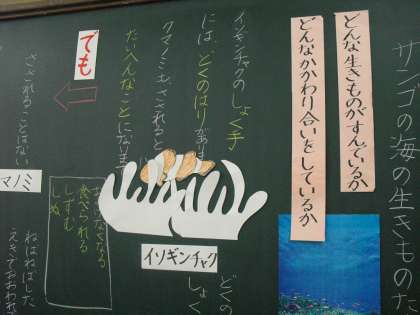 サンゴの海の生きものた
どんな生きものがすんでいるか
どんなかかわり合いをしているか
イソギンチャクのしょく手
には、どくのはりがありま
クマノミも、さされると
たいへんなことになります
でも
さされることはない
マノミ
食べられる
しずむ
しぬ
イソギンチャク
どくの
しょく
ねばねばした
えきでおおわれ